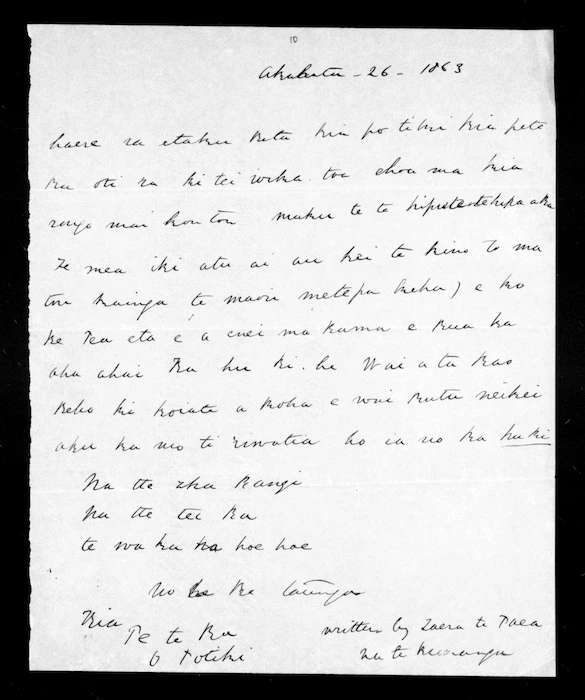 10
Akuhata - 26 - 1863
haere ra etaku reta kia po tiki kia pete
ka oti ra ki tei wika toa ehoa ma kia
rongo mai koutou maku te te
Te mea iki atu ai au kei te kino to ma
tou kainga te maori metepa keha) e ko
ke Tea eta e a enei ma kama e kua ka
aha ahai Ka hu ki. he Wai a ta kao
keho ki koiate a koha e wai kutu neikei
aku ka mo ti ho ia no ka huki
Na te aka Rangi
Na te tei ka
te wa ka hoe hoe
No Ke taunga
Kia
Te te Ka
O Potiki
written by Zaera te Taea
na te